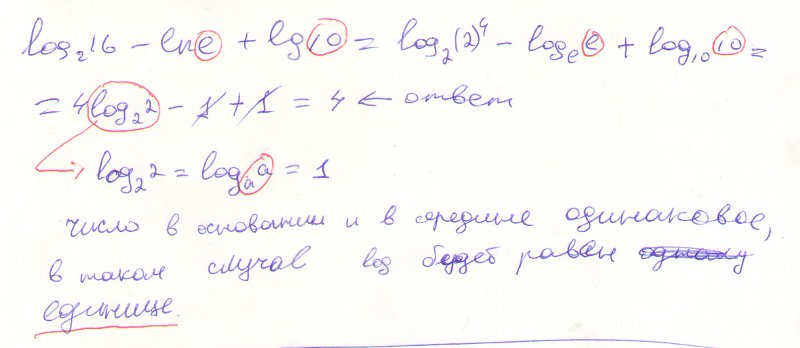 log₂16 - ln e + lg 10 = log₂(2)⁴ - logₑe + log₁₀10 =
= 4log₂2 - 1 + 1 = 4 ← ответ
log₂2 = logₐa = 1
число в основании и в середине одинаковое,
в таком случае log будет равен одному
единице.